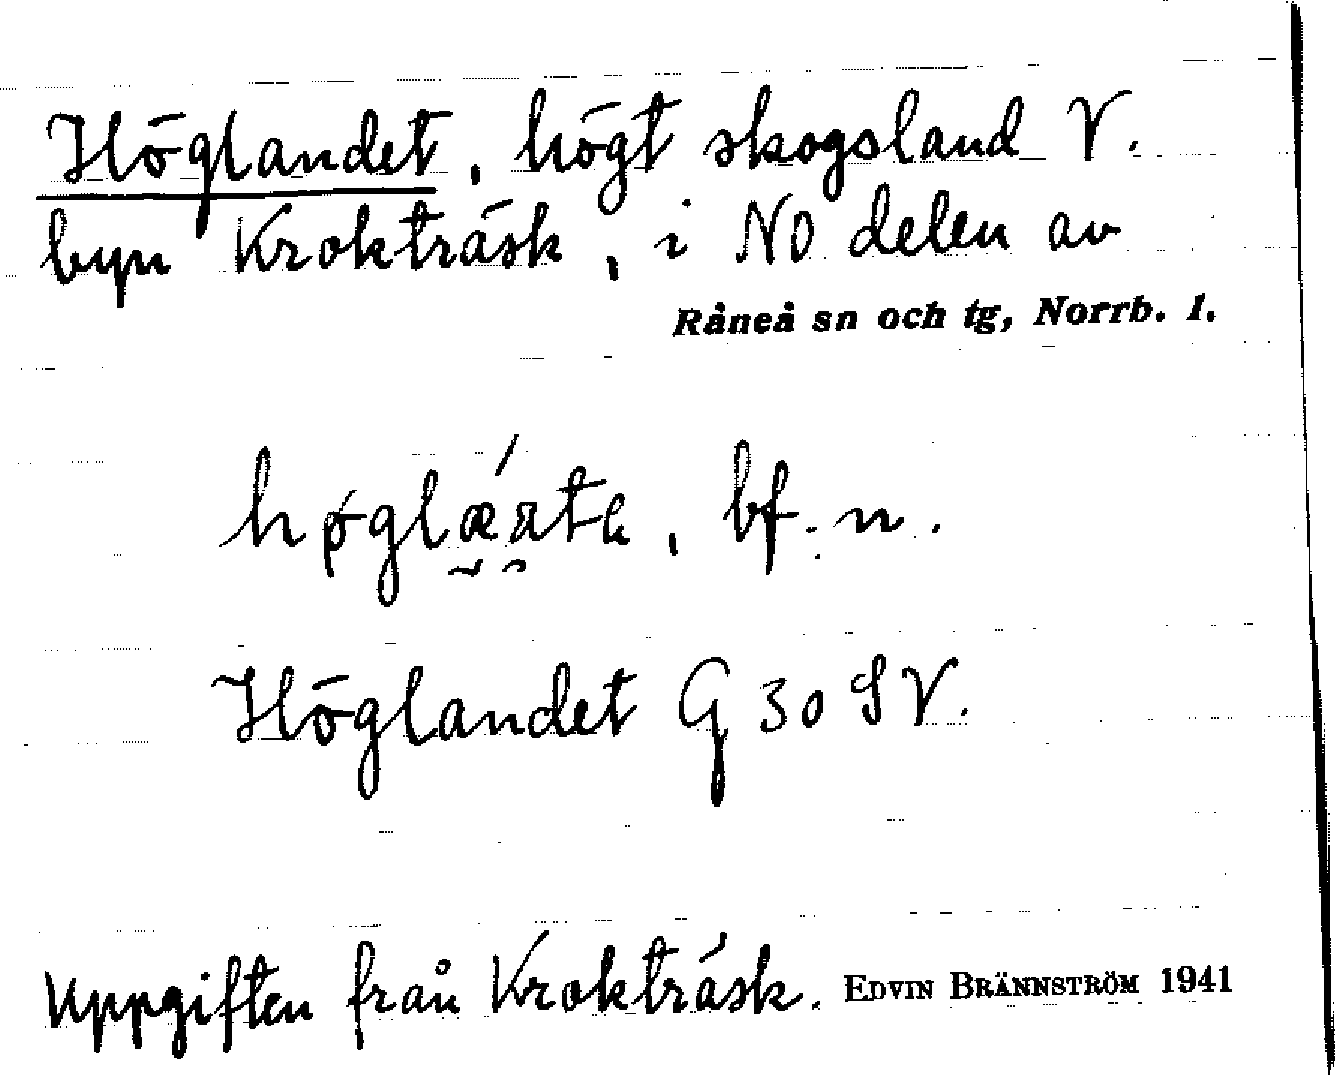 Höglandet, högt skogsland V.
byn Krokträsk, i NO delen av
Råneå sn och tg, Norrb. l.
bf. n.
Höglandet G 30 SV.
Uppgiften från Krokträsk. EDVIN BRÄNNSTRÖM 1941